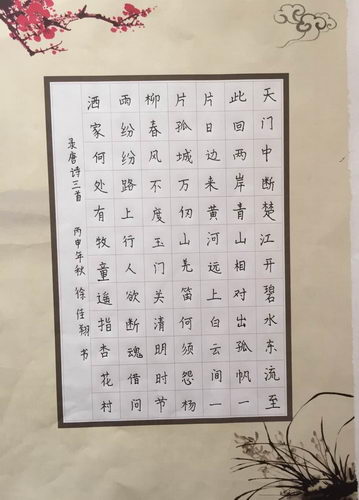 天门中断楚江开碧水东流至
此回两岸青山相对出孤帆一
片日边来黄河远上白云间一
片孤城万仞山羌笛何须怨杨
柳春风不度玉门关清明时节
雨纷纷路上行人欲断魂借问
酒家何处有牧童遥指杏花村
录唐诗三首 丙申年秋 徐佳翔书